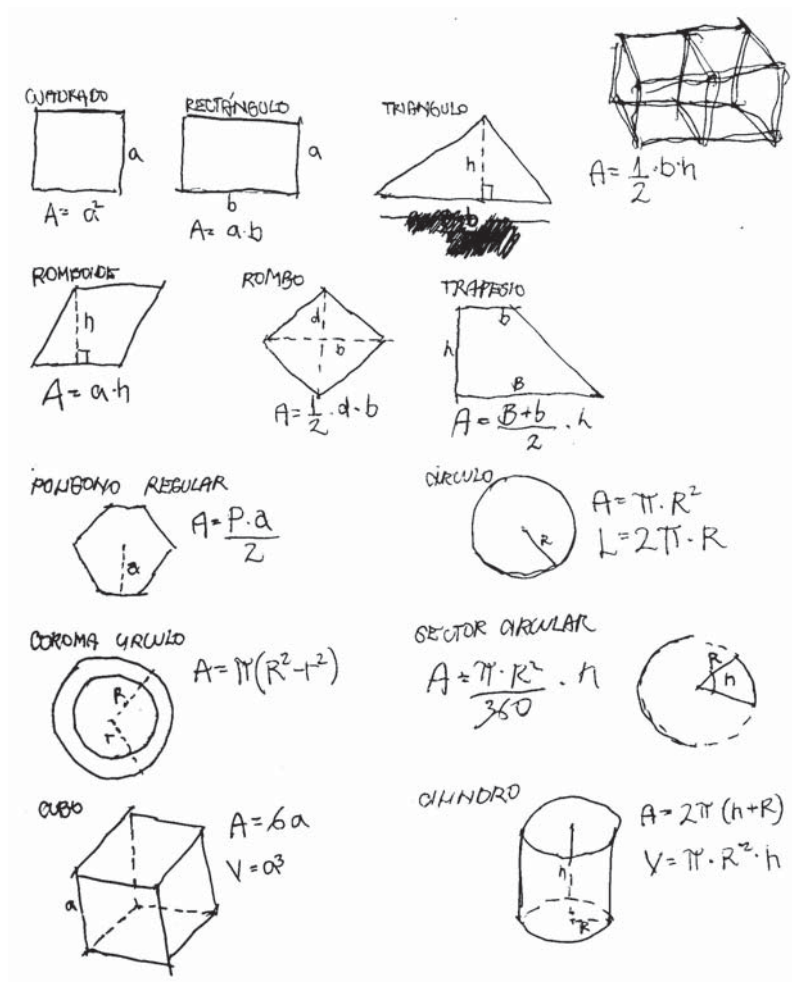 CUADRADO
a
A = a²
RECTÁNGULO
a
b
A = a·b
TRIANGULO
h
b
A = 1/2 · b·h
ROMBOIDE
h
A = a·h
ROMBO
d
b
A = 1/2 · d·b
TRAPESIO
b
h
B
A = B+b/2 · h
POLIGONO REGULAR
a
A = P·a/2
CIRCULO
R
A = π·R²
L = 2π·R
COROMA CIRCULO
R
r
A = π(R²-r²)
SECTOR CIRCULAR
A = π·R²/360 · n
R
n
CUBO
a
A = 6a
V = a³
CILINDRO
h
R
A = 2π (h+R)
V = π·R²·h